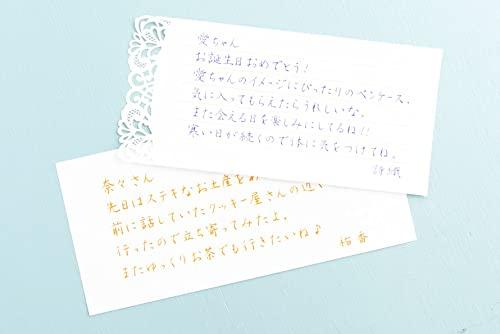 愛ちゃん
お誕生日おめでとう!
愛ちゃんのイメージにぴったりのペンケース、
気に入ってもらえたらうれしいな。
また会える日を楽しみにしてるね!!
寒い日が続くので体に気をつけてね。
詩織
奈々さん
先日はステキなお土産を
前に話していたクッキー屋さんの近く
行ったので立ち寄ってみたよ。
またゆっくりお茶でも行きたいね♪